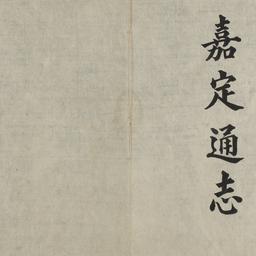 嘉定通志